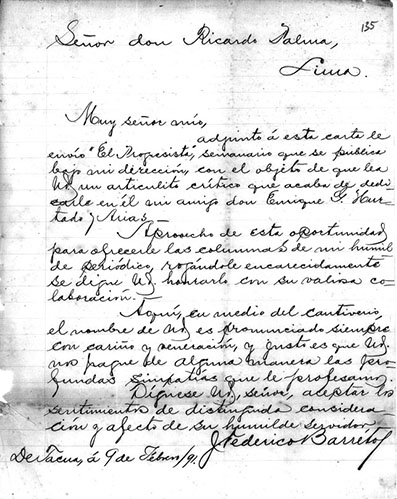 135
Señor don Ricardo Palma,
Lima.
Muy señor mío,
adjunto á esta carta le
envío "El Progresista", semanario que se publica
bajo mi dirección, con el objeto de que lea
Ud. un articulito crítico que acaba de dedi-
carle en él mi amigo don Enrique G. Hur-
tado y Arias.
Aprovecho de esta oportunidad
para ofrecerle las columnas de mi humil-
de periódico, rogándole encarecidamente
se digne Ud. honrarlo con su valiosa co-
laboración.
Aquí, en medio del cautiverio,
el nombre de Ud. es pronunciado siempre
con cariño y veneración, y justo es que Ud.
nos pague de alguna manera las pro-
fundas simpatías que le profesamos.
Dígnese Ud., señor, aceptar los
sentimientos de distinguida considera-
ción y afecto de su humilde servidor
J. Federico Barreto
De Tacna, á 9 de Febrero/91.